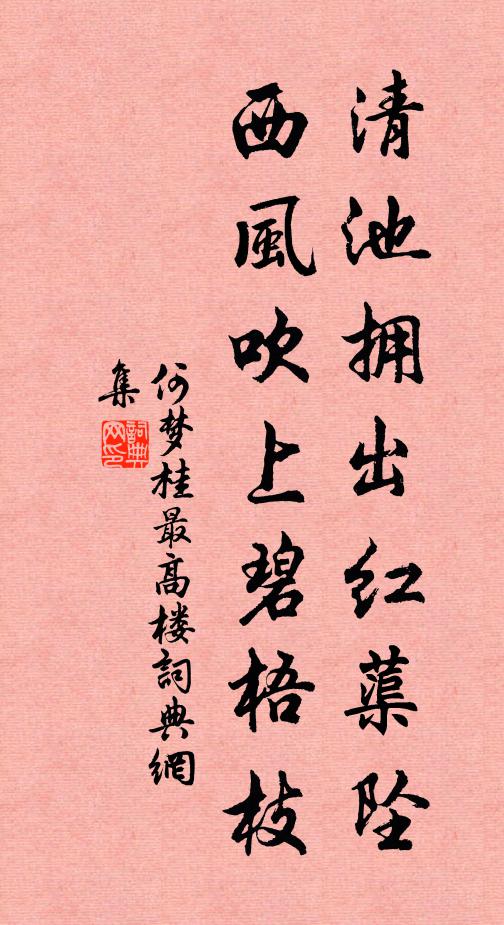 清池拥出红蕖坠
西風吹上碧梧枝
何梦桂最高楼詞典網
集
詞典网印